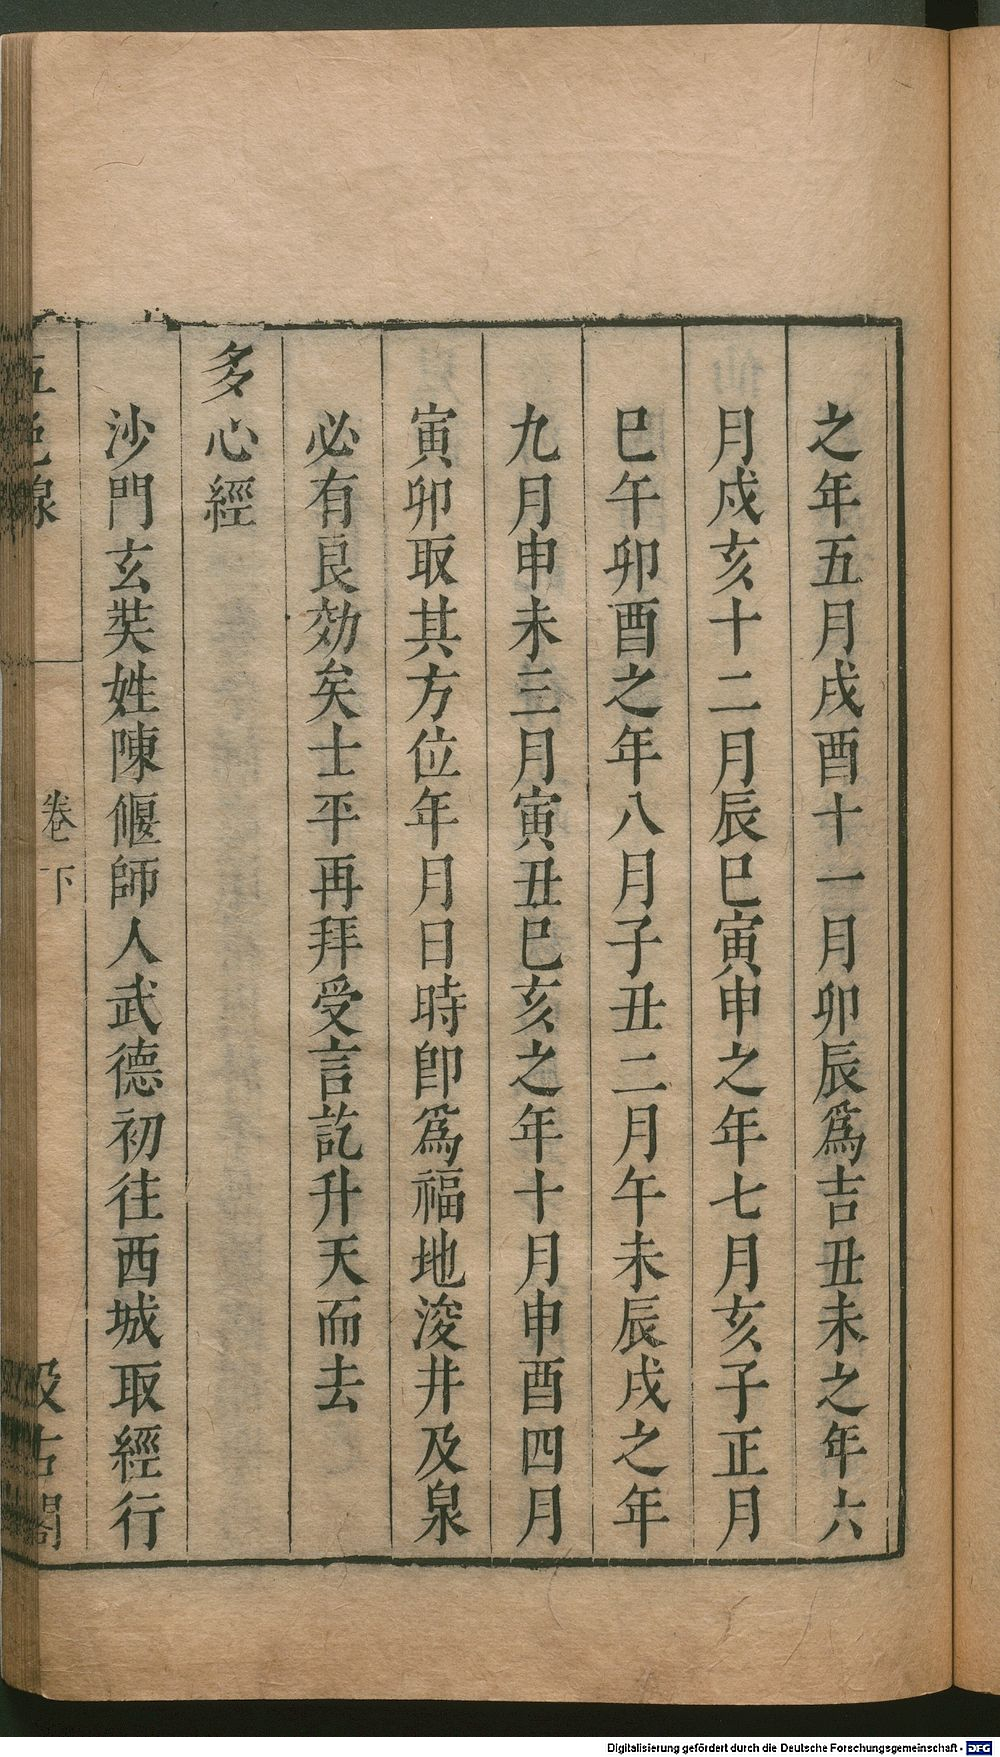 之年五月戌酉十一月卯辰爲吉丑未之年六
月戍亥十二月辰巳寅申之年七月亥子正月
巳午卯酉之年八月子丑二月午未辰戌之年
九月申未三月寅丑巳亥之年十月申酉四月
寅卯取其方位年月日時卽爲福地浚井及泉
必有良効矣士平再拜受言訖升天而去
多心經
沙門玄奘姓陳偃師人武德初往西城取經行
五色線
卷下
汲古閣
Digitalisierung gefördert durch die Deutsche Forschungsgemeinschaft - DFG